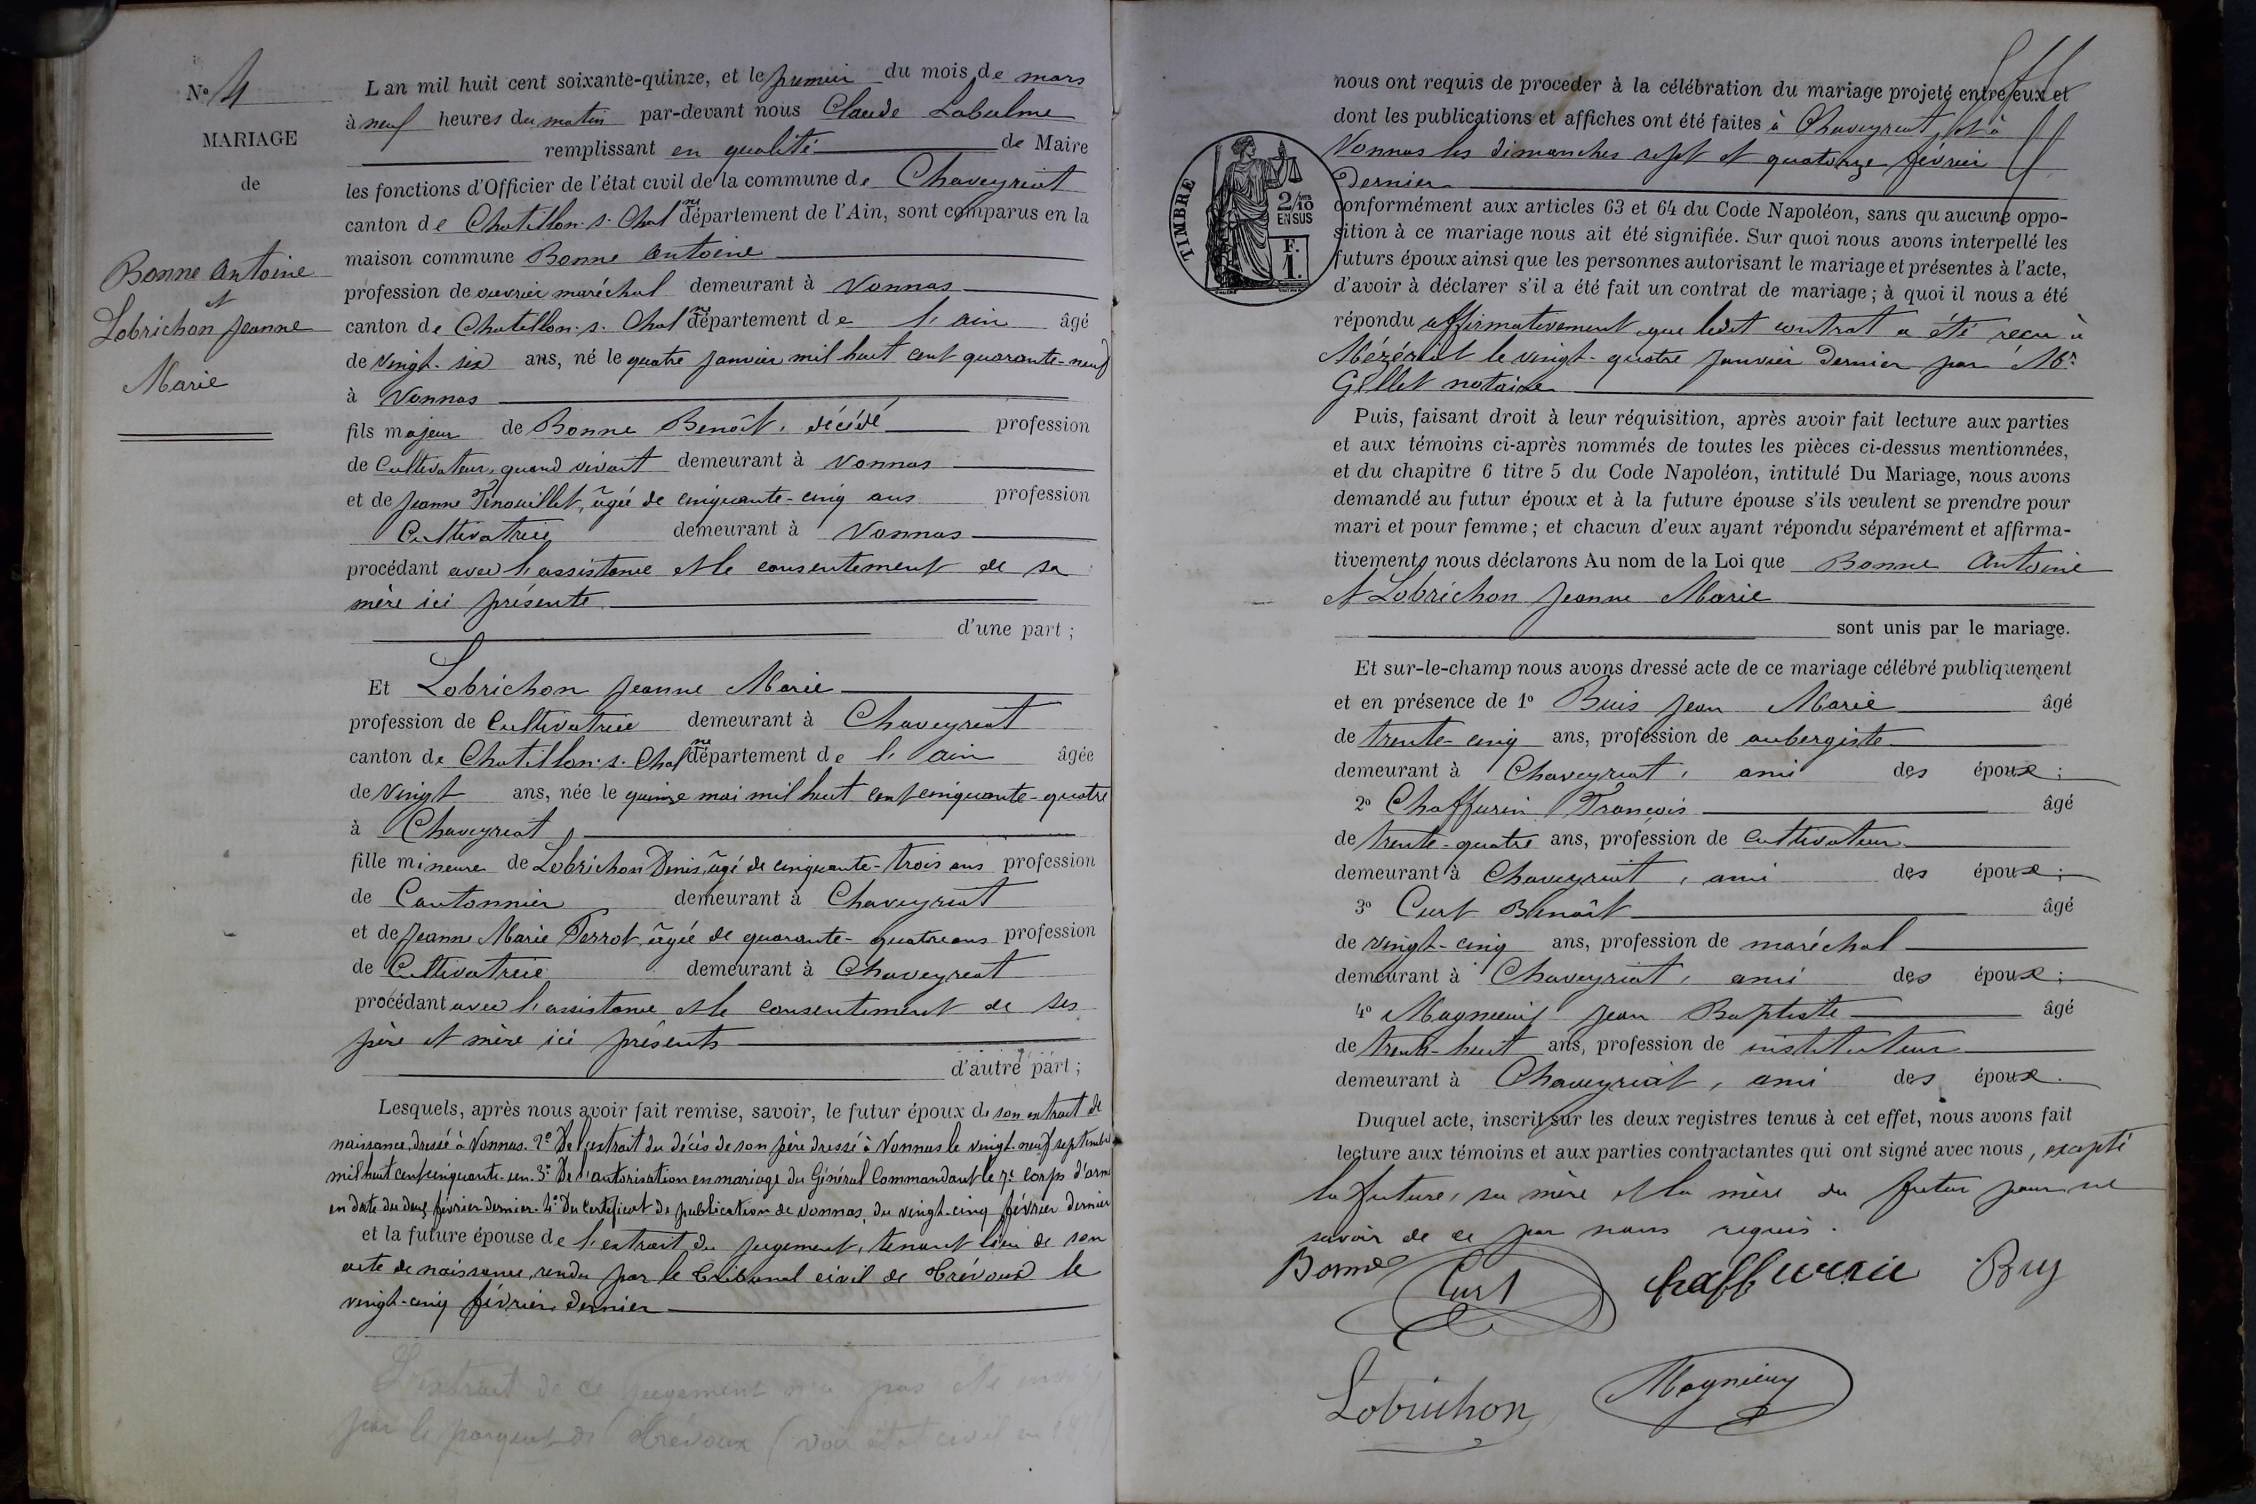 Nº 4
MARIAGE
de
Bonne Antoine
et
Lobrichon Jeanne
Marie
L'an mil huit cent soixante-quinze, et le premier du mois de mars
à neuf heures du matin par-devant nous Claude Labalme
remplissant en qualité de Maire
les fonctions d'Officier de l'état civil de la commune de Chaveyriat
canton de Chatillon-s-Chalne département de l'Ain, sont comparus en la
maison commune Bonne Antoine
profession de ouvrier maréchal demeurant à Vonnas
canton de Chatillon-s-Chalne département de l'ain âgé
de vingt-six ans, né le quatre janvier mil huit cent quarante-neuf
à Vonnas
fils majeur de Bonne Benoît, décédé profession
de Cultivateur, quand vivait demeurant à Vonnas
et de Jeanne Fenouillet, âgée de cinquante-cinq ans profession
Cultivatrice demeurant à Vonnas
procédant avec l'assistance et le consentement de sa
mère ici présente
d'une part ;
Et Lobrichon Jeanne Marie
profession de Cultivatrice demeurant à Chaveyriat
canton de Chatillon-s-Chalne département de l'ain âgée
de vingt ans, née le quinze mai mil huit cent cinquante-quatre
à Chaveyriat
fille mineure de Lobrichon Denis, âgé de cinquante-trois ans profession
de Cantonnier demeurant à Chaveyriat
et de Jeanne Marie Perrot, âgée de quarante-quatre ans profession
de Cultivatrice demeurant à Chaveyriat
procédant avec l'assistance et le consentement de ses
père et mère ici présents
d'autre part ;
Lesquels, après nous avoir fait remise, savoir, le futur époux de son extrait de
naissance, dressé à Vonnas. 2º De l'extrait du décès de son père dressé à Vonnas le vingt-neuf septembre
mil huit cent cinquante-un. 3º De l'autorisation en mariage du Général Commandant le 7e corps d'arm
en date du deux février dernier. 4º Du Certificat de publication de Vonnas, du vingt-cinq février dernier
et la future épouse de l'extrait du jugement, tenant lieu de son
acte de naissance, rendu par le Tribunal civil de Trévoux le
vingt-cinq février dernier
L'extrait de ce jugement n'a pas été
par le parquet de Trévoux (voir état civil en
TIMBRE
2/10
EN SUS
F.
1.
nous ont requis de proceder à la célébration du mariage projeté entre eux et
dont les publications et affiches ont été faites à Chaveyriat, et à
Vonnas les dimanches sept et quatorze février
dernier
conformément aux articles 63 et 64 du Code Napoléon, sans qu'aucune oppo-
sition à ce mariage nous ait été signifiée. Sur quoi nous avons interpellé les
futurs époux ainsi que les personnes autorisant le mariage et présentes à l'acte,
d'avoir à déclarer s'il a été fait un contrat de mariage ; à quoi il nous a été
répondu affirmativement que ledit contrat a été reçu à
Mézériat le vingt-quatre janvier dernier par Mr.
Gillet notaire
Puis, faisant droit à leur réquisition, après avoir fait lecture aux parties
et aux témoins ci-après nommés de toutes les pièces ci-dessus mentionnées,
et du chapitre 6 titre 5 du Code Napoléon, intitulé Du Mariage, nous avons
demandé au futur époux et à la future épouse s'ils veulent se prendre pour
mari et pour femme ; et chacun d'eux ayant répondu séparément et affirma-
tivement, nous déclarons Au nom de la Loi que Bonne Antoine
et Lobrichon Jeanne Marie
sont unis par le mariage.
Et sur-le-champ nous avons dressé acte de ce mariage célébré publiquement
et en présence de 1º Buis Jean Marie âgé
de trente-cinq ans, profession de aubergiste
demeurant à Chaveyriat, ami des époux ;
2º Chaffurin François âgé
de trente-quatre ans, profession de Cultivateur
demeurant à Chaveyriat, ami des époux ;
3º Curt Benoît âgé
de vingt-cinq ans, profession de maréchal
demeurant à Chaveyriat, ami des époux ;
4º Magnieny Jean Baptiste âgé
de trente-huit ans, profession de instituteur
demeurant à Chaveyriat, ami des époux.
Duquel acte, inscrit sur les deux registres tenus à cet effet, nous avons fait
lecture aux témoins et aux parties contractantes qui ont signé avec nous, excepté
la future, sa mère et la mère du futur pour ne
savoir de ce par nous requis.
Bonne Curt Buy
Lobrichon Magnieny